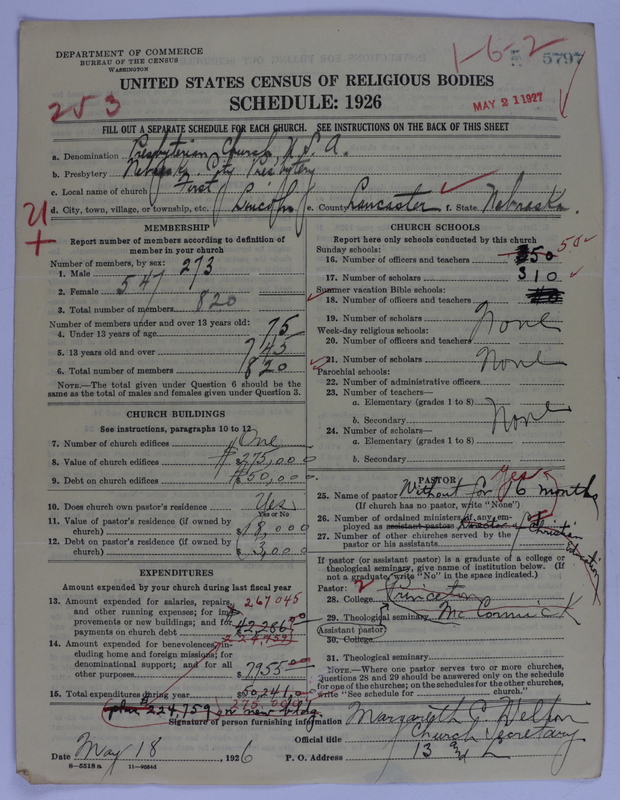 DEPARTMENT OF COMMERCE
BUREAU OF THE CENSUS
WASHINGTON
1-6-2
5797
UNITED STATES CENSUS OF RELIGIOUS BODIES
SCHEDULE: 1926
253
MAY 21 1927
FILL OUT A SEPARATE SCHEDULE FOR EACH CHURCH. SEE INSTRUCTIONS ON THE BACK OF THIS SHEET
a. Denomination Presbyterian Church, U.S.A.
b. Presbytery Nebraska City Presbytery
c. Local name of church First
d. City, town, village, or township, etc. Lincoln e. County Lancaster f. State Nebraska.
MEMBERSHIP
Report number of members according to definition of member in your church
Number of members, by sex:
1. Male 273
2. Female 547
3. Total number of members 820
Number of members under and over 13 years old:
4. Under 13 years of age 75
5. 13 years old and over 745
6. Total number of members 820
NOTE.—The total given under Question 6 should be the same as the total of males and females given under Question 3.
CHURCH BUILDINGS
See instructions, paragraphs 10 to 12
7. Number of church edifices One
8. Value of church edifices $275,000
9. Debt on church edifices $50,000.
10. Does church own pastor's residence? Yes
Yes or No
11. Value of pastor's residence (if owned by church) $18,000
12. Debt on pastor's residence (if owned by church) $3,000
EXPENDITURES
Amount expended by your church during last fiscal year
13. Amount expended for salaries, repairs, and other running expenses; for improvements or new buildings; and for payments on church debt 267045
$42286
224,759
14. Amount expended for benevolences, including home and foreign missions; for denominational support; and for all other purposes $7955.00
15. Total expenditures during year $50,241.00
plus $224,759 on new bldg.
CHURCH SCHOOLS
Report here only schools conducted by this church
Sunday schools:
16. Number of officers and teachers 50 50
17. Number of scholars 310
Summer vacation Bible schools:
18. Number of officers and teachers
19. Number of scholars None
Week-day religious schools:
20. Number of officers and teachers
21. Number of scholars None
Parochial schools:
22. Number of administrative officers
23. Number of teachers—
a. Elementary (grades 1 to 8) None
b. Secondary
24. Number of scholars—
a. Elementary (grades 1 to 8)
b. Secondary
PASTOR Yes
25. Name of pastor Without for 6 months
(If church has no pastor, write "None")
26. Number of ordained ministers if any employed as assistant pastor Director of Christian Education
27. Number of other churches served by the pastor or his assistants
If pastor (or assistant pastor) is a graduate of a college or theological seminary, give name of institution below. (If not a graduate, write "No" in the space indicated.)
Pastor: 2
28. College Princeton
29. Theological seminary McCormick
Assistant pastor:
30. College
31. Theological seminary
NOTE.—Where one pastor serves two or more churches, questions 28 and 29 should be answered only on the schedule for one of the churches; on the schedules for the other churches, write "See schedule for ------ church."
Signature of person furnishing information Margareth G. Welton
Official title Church Secretary
Date May 18, 1926 P. O. Address 13 and L
8—5518a 11—9684d